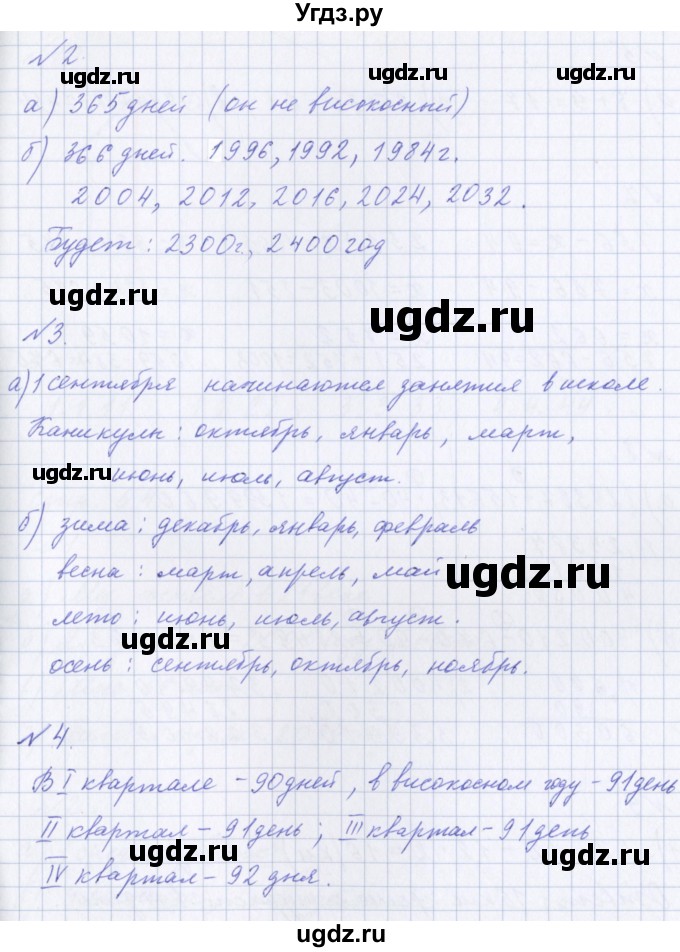 Угдз.ру
№2.
ugdz.ru ugdz.ru
а) 365 дней (он не високосный)
ugdz.ru
б) 366 дней. 1996, 1992, 1984г.
2004, 2012, 2016, 2024, 2032.
Будет: 2300г., 2400 год
ugdz.ru ugdz.ru
№3.
а) 1 сентября начинаются занятия в школе.
Каникулы: октябрь, январь, март,
ugdz.ru июнь, июль, август.
б) зима: декабрь, январь, февраль
весна: март, апрель, май ugdz.ru
лето: июнь, июль, август.
ugdz.ru
осень: сентябрь, октябрь, ноябрь.
№4.
В I квартале - 90 дней, в високосном году - 91 день
II квартал - 91 день; III квартал - 91 день
ugdz.ru ugdz.ru
IV квартал - 92 дня.
ugdz.ru
ugdz.ru